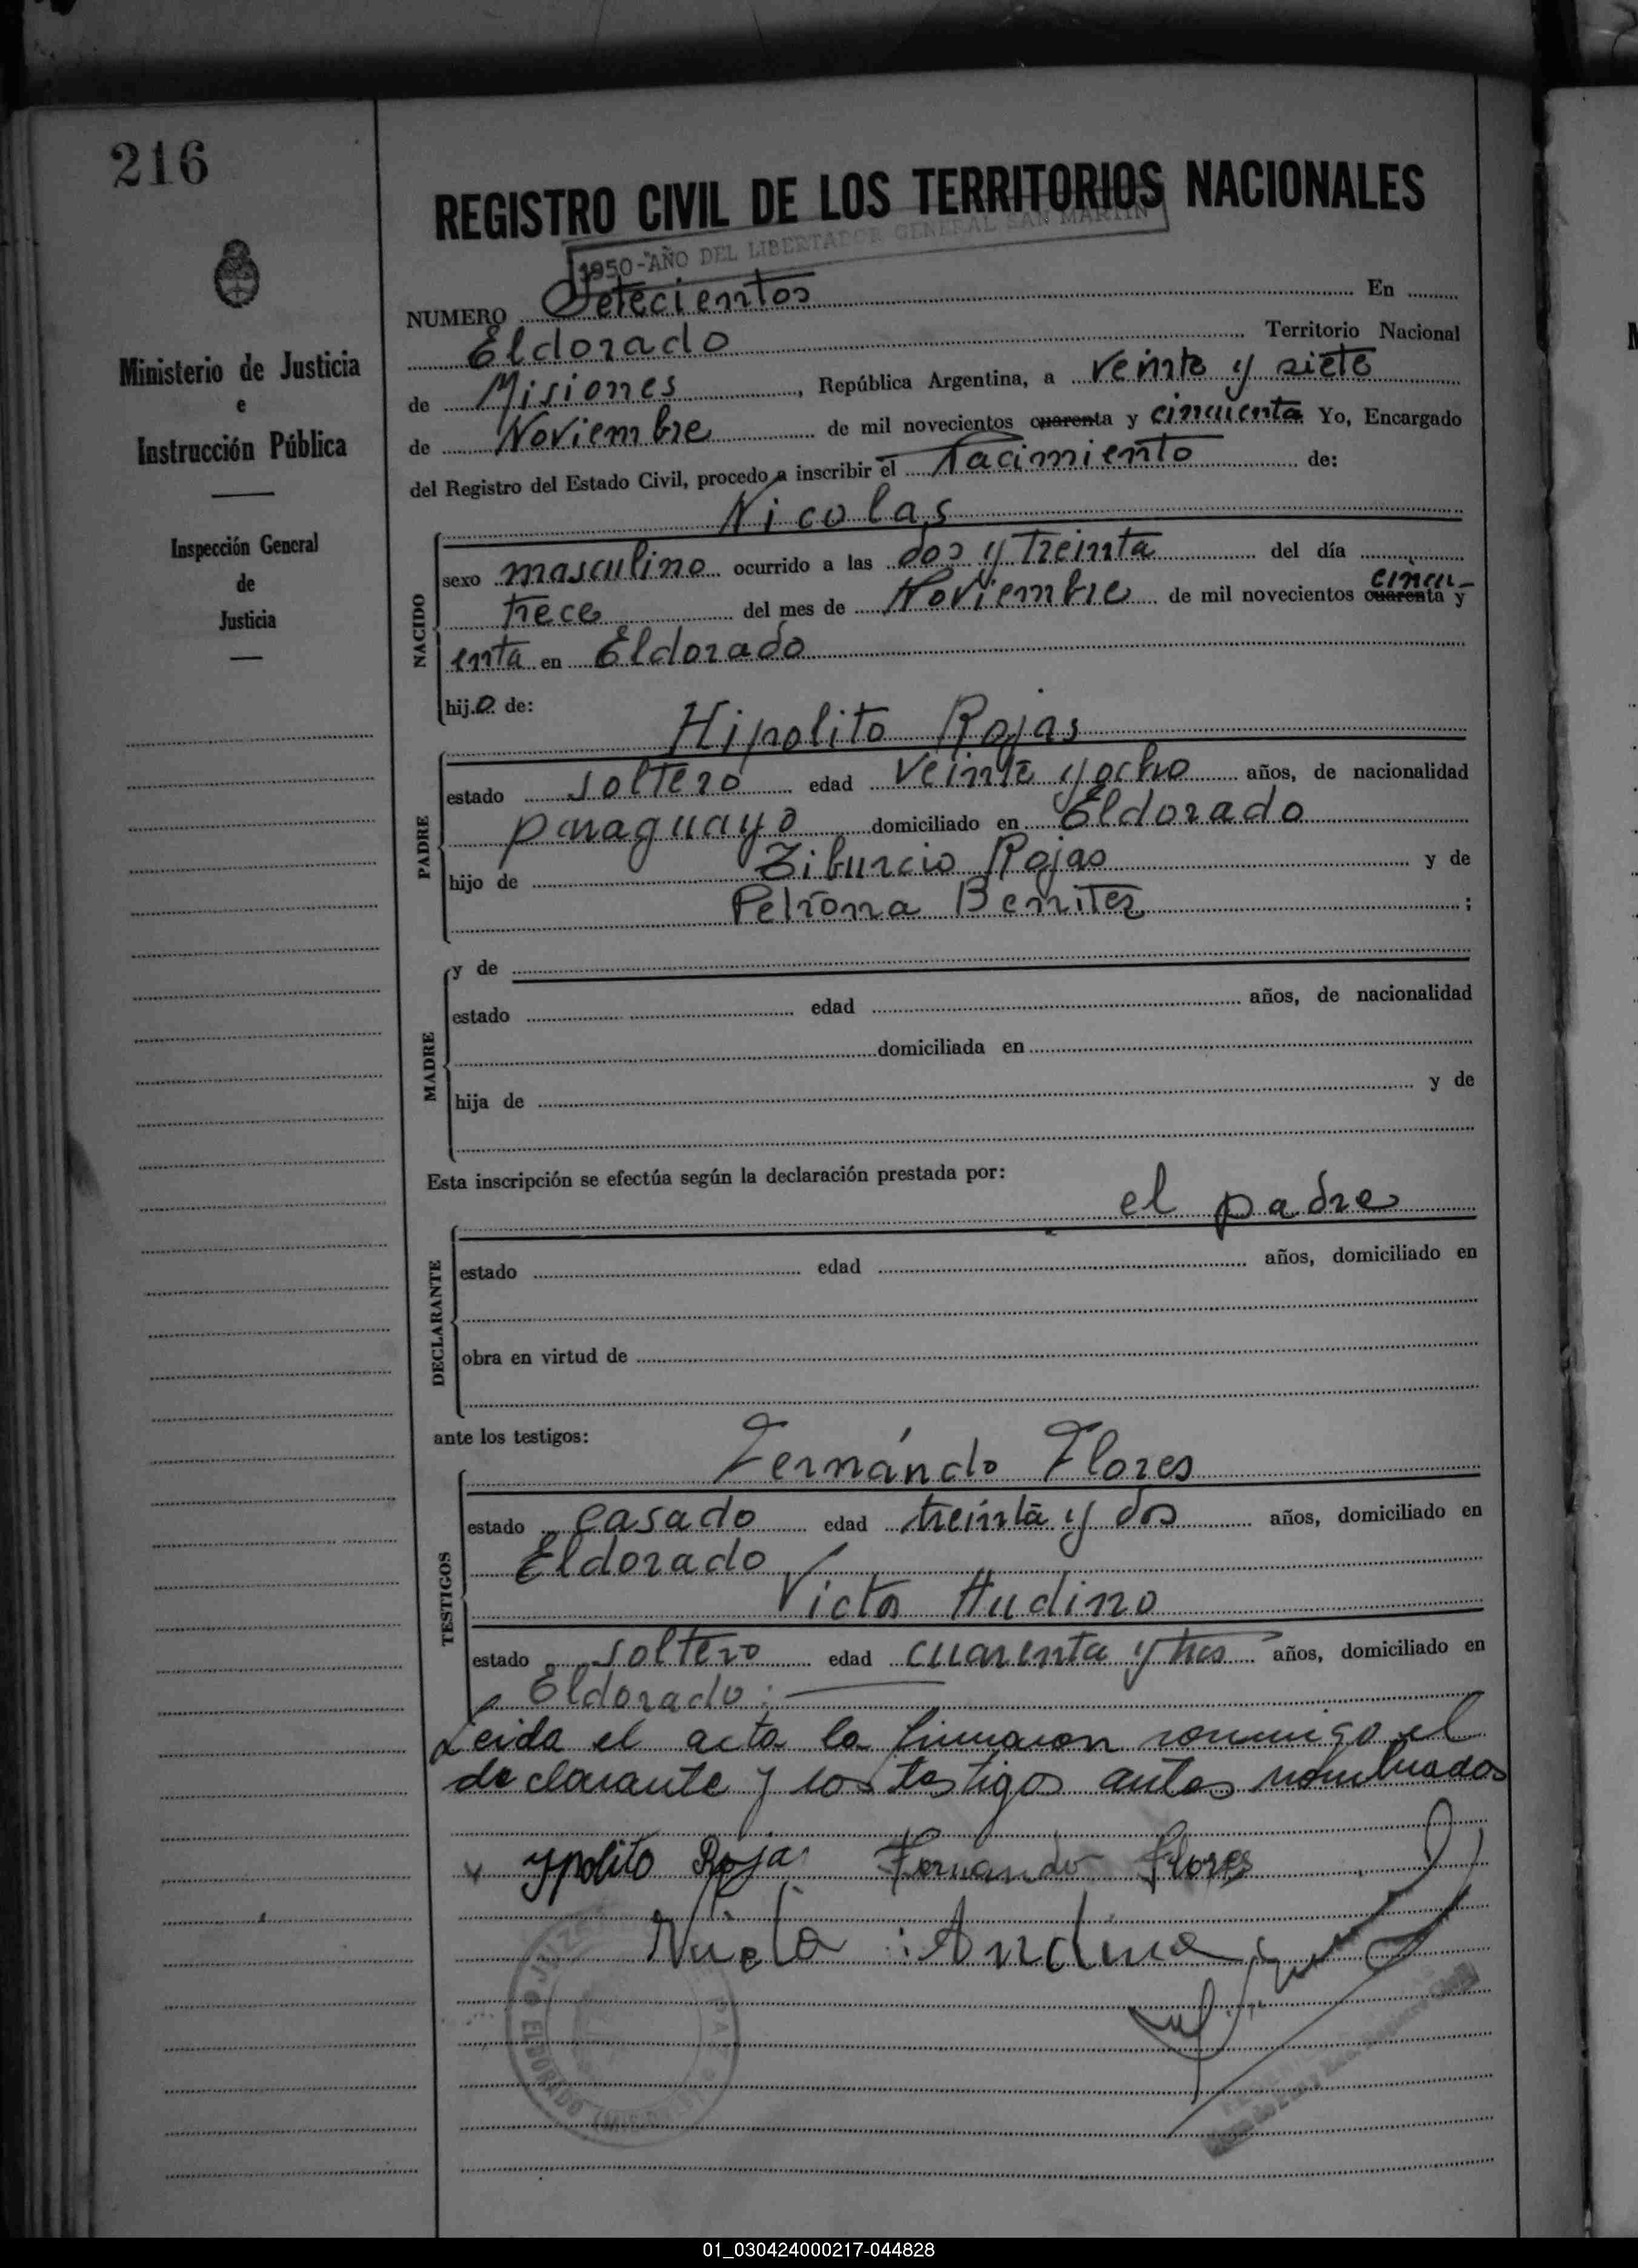 216
REGISTRO CIVIL DE LOS TERRITORIOS NACIONALES
1950-AÑO DEL LIBERTADOR GENERAL SAN MARTIN
NUMERO Setecientos En
Eldorado Territorio Nacional
de Misiones, República Argentina, a veinte y siete
de Noviembre de mil novecientos cuarenta y cincuenta Yo, Encargado
del Registro del Estado Civil, procedo a inscribir el Nacimiento de:
Ministerio de Justicia
e
Instrucción Pública
Inspección General
de
Justicia
NACIDO
Nicolas
sexo masculino ocurrido a las dos y treinta del día
trece del mes de Noviembre de mil novecientos cuarenta y cincu-
enta en Eldorado
hijo de:
PADRE
Hipolito Rojas
estado soltero edad veinte y ocho años, de nacionalidad
paraguayo domiciliado en Eldorado
hijo de Tiburcio Rojas y de
Petrona Benitez ;
MADRE
y de
estado edad años, de nacionalidad
domiciliada en
hija de y de
Esta inscripción se efectúa según la declaración prestada por:
el padre
DECLARANTE
estado edad años, domiciliado en
obra en virtud de
ante los testigos:
TESTIGOS
Fernándo Flores
estado casado edad treinta y dos años, domiciliado en
Eldorado
Victor Audino
estado soltero edad cuarenta y tres años, domiciliado en
Eldorado:
Leida el acta la firmaron conmigo el
declarante y los testigos antes nombrados
Ypolito Rojas Fernando Flores
ELDORADO
01_030424000217-044828